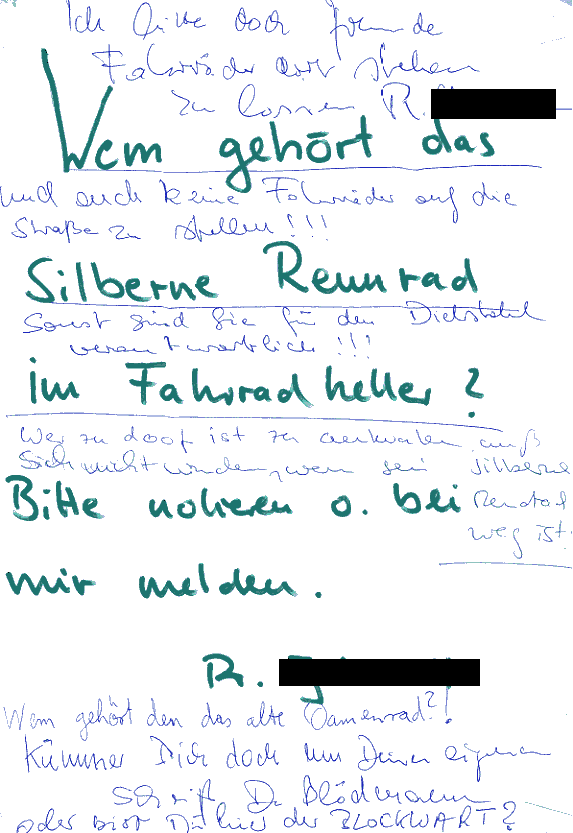 Ich bitte doch fremde
Fahrräder dort stehen
zu lassen R.
Wem gehört das
und auch keine Fahrräder auf die
Straße zu stellen!!!
Silberne Rennrad
Sonst sind Sie für den Diebstahl
verantwortlich!!!
im Fahrradkeller?
Wer zu doof ist zu muß
sich nicht wundern, wenn sein silbernes
Bitte notieren o. bei
weg ist!
mir melden.
R.
Wem gehört den das alte Damenrad?!
Kümmer Dich doch um Deinen eigenen
Du Blödmann
oder bist Du hier der BLOCKWART?